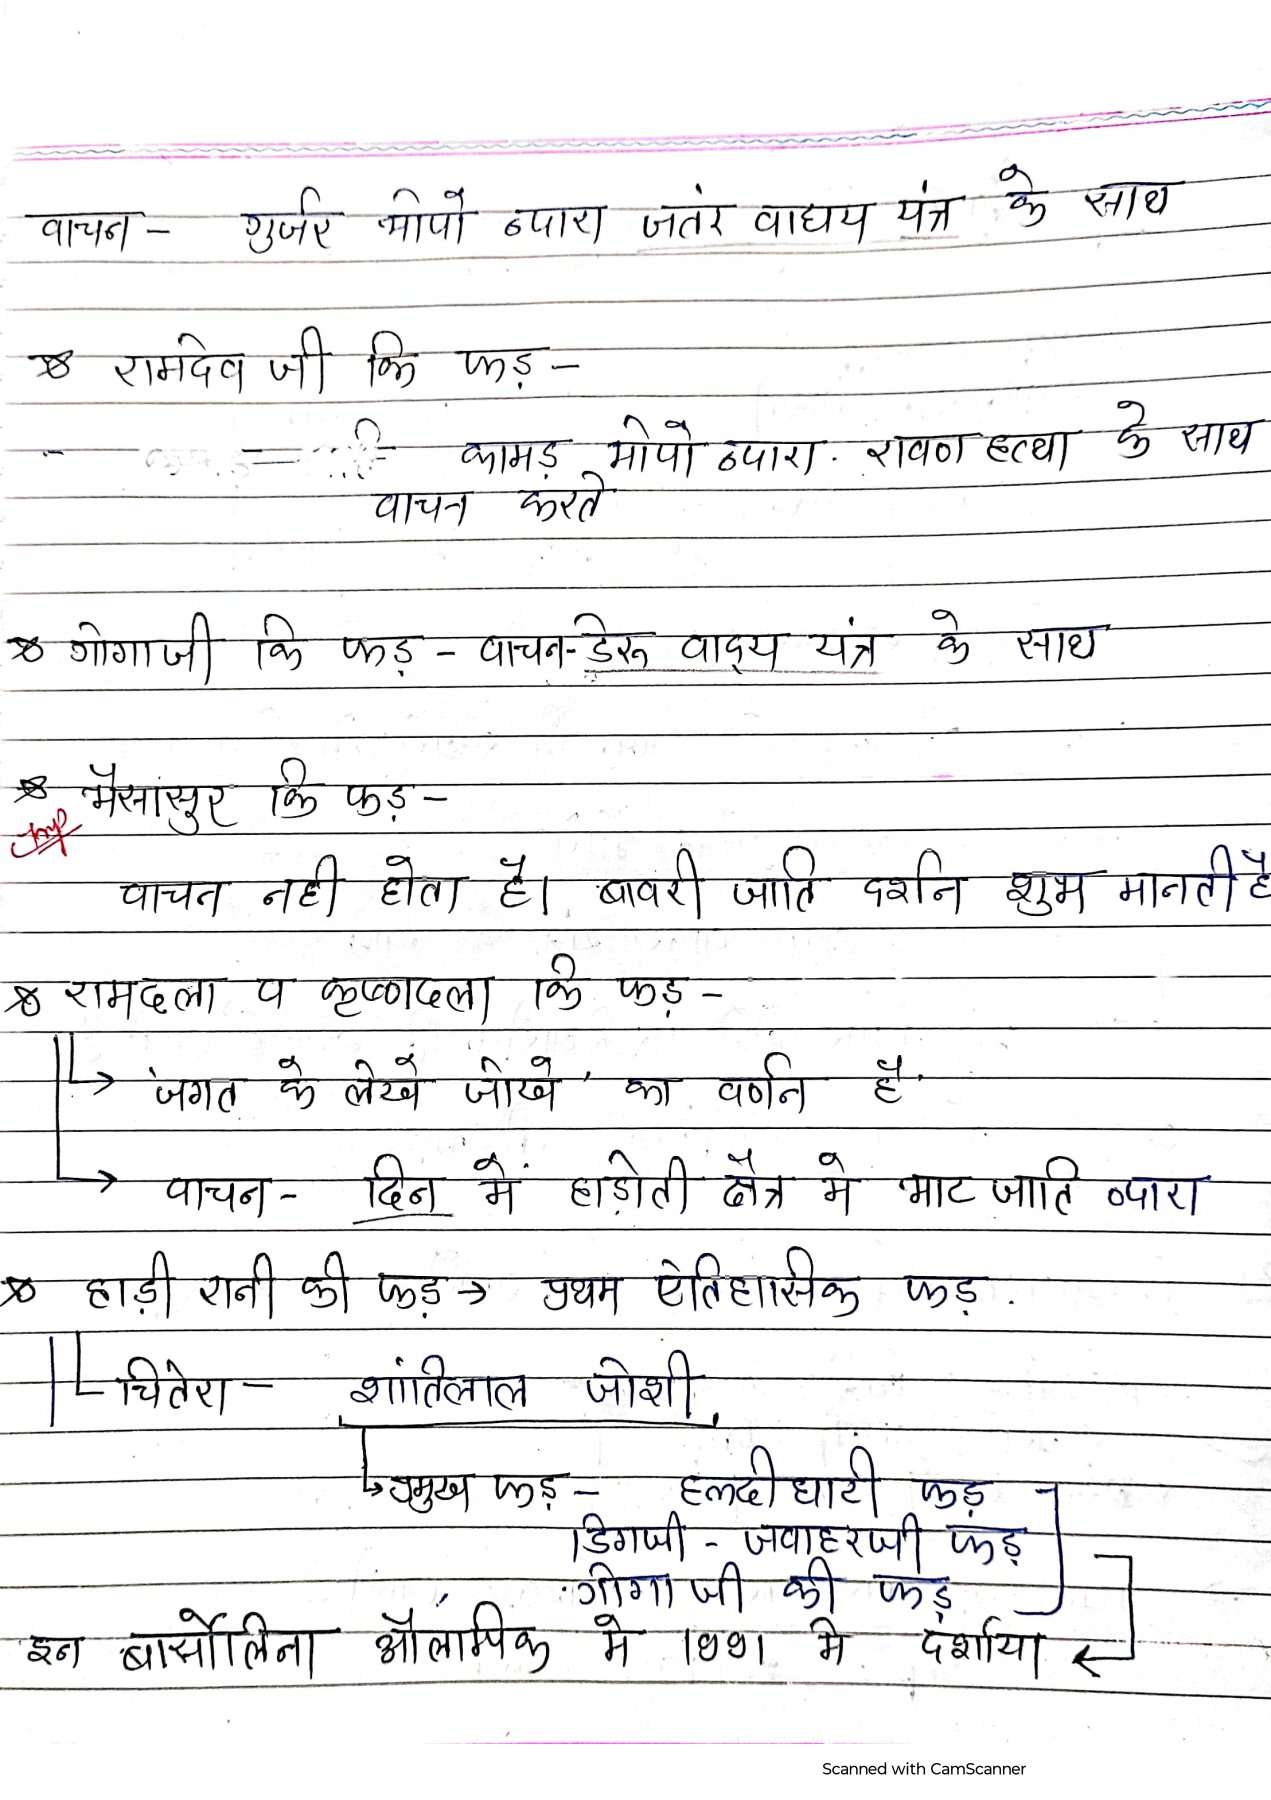 वाचन - गुर्जर भोपो व्दारा जतंर वाद्यय यंत्र के साथ
रामदेव जी कि फड़ -
कामड़ भोपो व्दारा रावण हत्था के साथ
वाचन करते
गोगाजी कि फड़ - वाचन - डेरू वाद्य यंत्र के साथ
भैसासुर कि फड़ -
Imp
वाचन नही होता है। बावरी जाति दर्शन शुभ मानती है
रामदला व कृष्णदला कि फड़ -
→ 'जगत के लेखे जोखे' का वर्णन है
→ वाचन - दिन में हाड़ोती क्षैत्र मे भाट जाति व्दारा
हाड़ी रानी की फड़ → प्रथम ऐतिहासिक फड़ .
चितेरा - शांतिलाल जोशी
प्रमुख फड़ - हलदी घाटी फड़
डिगजी - जवाहरजी फड़
गोगा जी की फड़
इन बार्सोलिना औलाम्पिक मे 1991 मे दर्शाया
Scanned with CamScanner